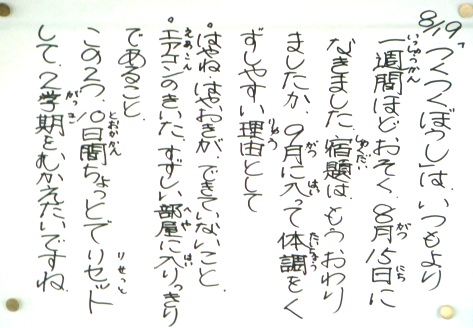 8/19「つくつくぼうし」は、いつもより
一週間ほどおそく、8月15日に
なきました。宿題は、もうおわり
ましたか。9月に入って体調をく
ずしやすい理由として
•はやね はやおきが、できていないこと。
•エアコンのきいた、すずしい部屋に入りっきり
であること。
この2つ、10日間ちょっとでリセット
して、2学期をむかえたいですね。